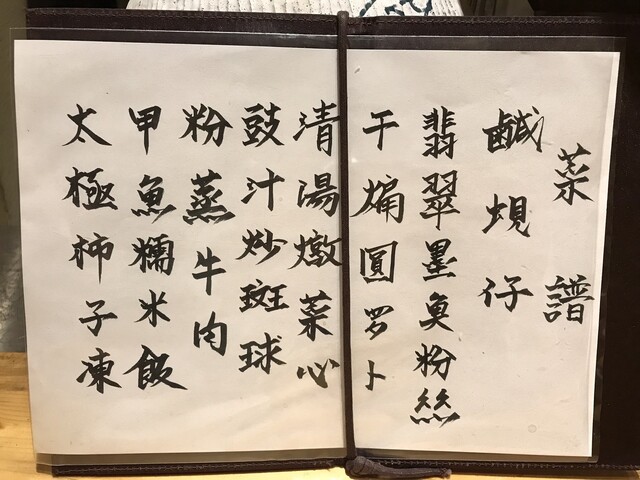 菜譜
鹹蜆仔
翡翠墨魚粉絲
干煸圓罗卜
清湯燉菜心
豉汁炒斑球
粉蒸牛肉
甲魚糯米飯
太極柿子凍